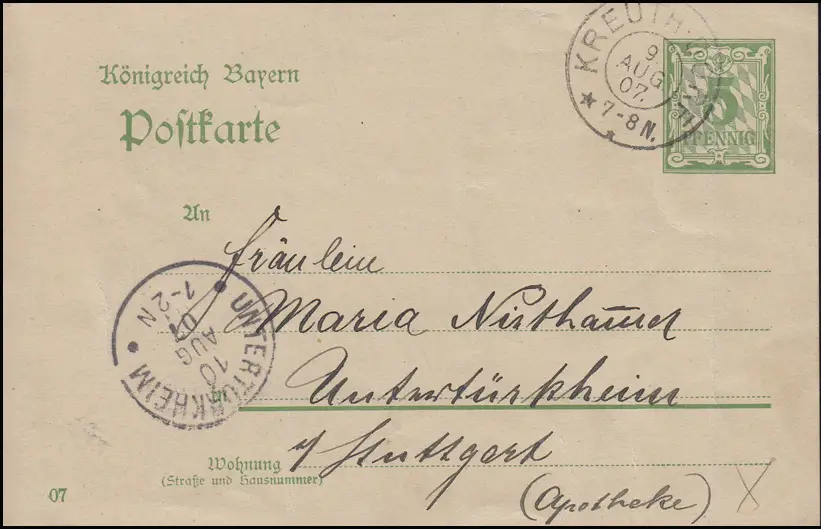 Königreich Bayern
Postkarte
KREUTH
9
AUG
07.
7-8 N.
5
PFENNIG
An
Fräulein
Maria
Untertürkheim
Untertürkheim
10
AUG
07
1-2 N
a/ Stuttgart
Wohnung
(Straße und Hausnummer)
(Apotheke)
07